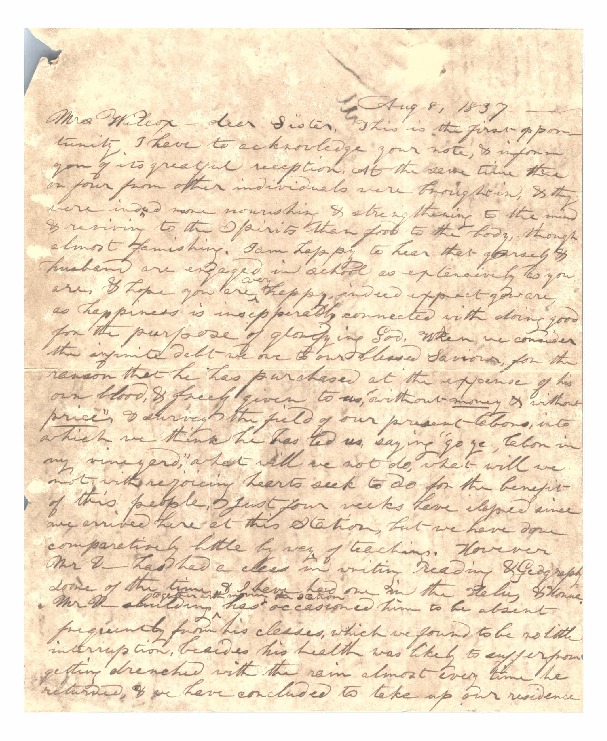 Aug 8, 1837
Mrs Wilcox - dear Sister, This is the first oppor-
tunity I have to acknowledge your note, & inform
you of its grateful reception. At the same time three
or four from other individuals were brought in, & they
were indeed more nourishing & strengthening to the mind
& reviving to the Spirits than food to the body, though
almost famishing. I am happy to hear that yourself &
husband are engaged in school as extensively as you
are, & hope you are very happy, indeed expect you are,
as happiness is inseperably connected with doing good
for the purpose of glorifying God. When we consider
the infinite debt we owe to our blessed Saviour, for the
ransom that he has purchased at the expense of his
own blood, & freely given to us, "without money & without
price", & survey the field of our present labors, into
which we think he has led us, saying "go ye, labor in
my vineyard," what will we not do, what will we
not with rejoicing hearts seek to do for the benefit
of this people. Just four weeks have elapsed since
we arrived here at this Station, but we have done
comparatively little by way of teaching. However
Mr V- has had a class in writin reading & Geography
some of the time & I have had one in the
Mr V- building has occasioned him to be absent
frequently from his classes, which we found to be no little
interruption, besides his health was likely to suffer from
getting drenched with the rain almost every time he
returned, & we have concluded to take up our residence